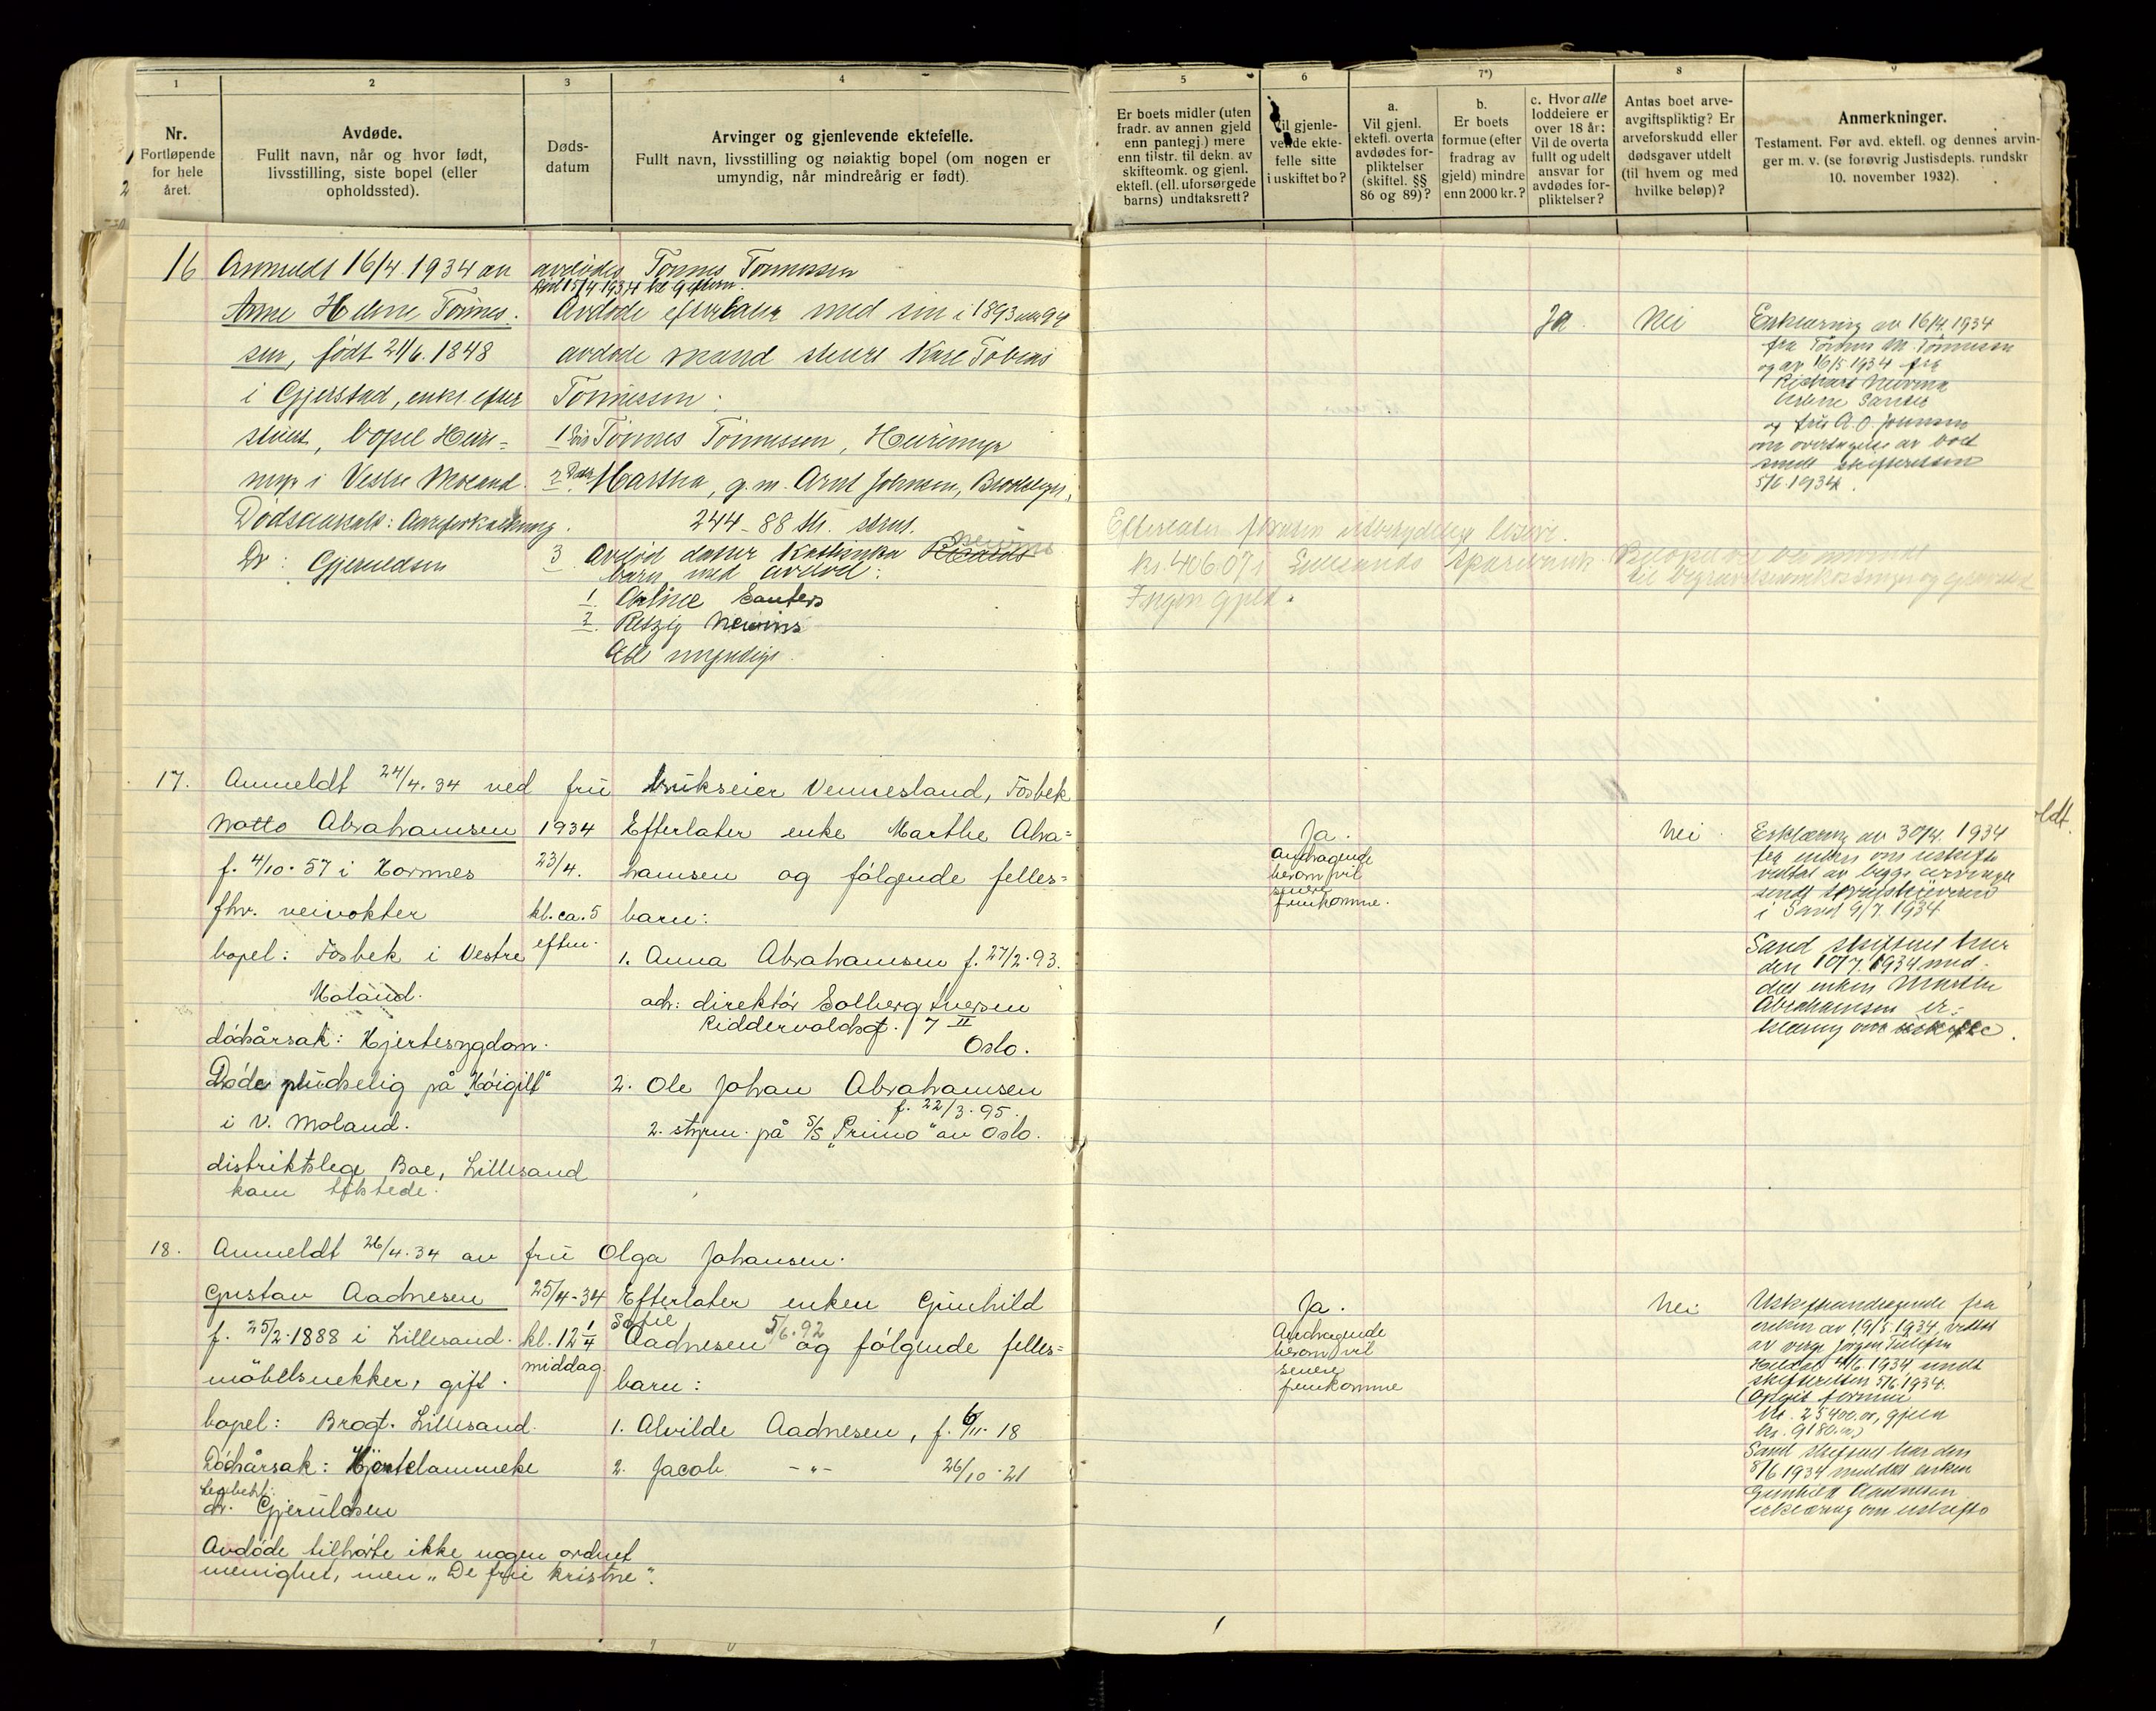 1
Nr.
Fortløpende
for hele
året.
2
Avdøde.
Fullt navn, når og hvor født,
livsstilling, siste bopel (eller
opholdssted).
3
Døds-
datum
4
Arvinger og gjenlevende ektefelle.
Fullt navn, livsstilling og nøiaktig bopel (om nogen er
umyndig, når mindreårig er født).
5
Er boets midler (uten
fradr. av annen gjeld
enn pantegj.) mere
enn tilstr. til dekn. av
skifteomk. og gjenl.
ektef. (ell. uforsørgede
barns) undtaksrett?
6
Vil gjenle-
vende ekte-
felle sitte
i uskiftet bo?
7*)
a.
Vil gjenl.
ektefl. overta
avdødes for-
pliktelser
(skiftel. §§
86 og 89)?
b.
Er boets
formue (efter
fradrag av
gjeld) mindre
enn 2000 kr.?
c. Hvor alle
loddeiere er
over 18 år:
Vil de overta
fullt og udelt
ansvar for
avdødes for-
pliktelser?
8
Antas boet arve-
avgiftspliktig? Er
arveforskudd eller
dødsgaver utdelt
(til hvem og med
hvilke beløp)?
9
Anmerkninger.
Testament. Før avd. ektefl. og dennes arvin-
ger m. v. (se forøvrig Justisdepts. rundskr
10. november 1932).
16 Anmeldt 16/4. 1934 av avdødes Tønnes Tønnessen
Død 15/4 1934 kl 9 efterm.
Anne Helene Tønnes- Avdøde efterlater med sin i 1893
sen, født 21/6. 1848 avdøde mand Karl Tobias
i Gjerstad, enke efter Tønnessen:
bopel Heire- 1 Søn Tønnes Tønnessen, Heiremyr
myr i Vestre Moland. 2 Dat. Martha, g.m. Arnt Johnsen, Brooklyn,
Dødsaarsak: Aareforkalkning. 244 - 88 str.
Dr: Gjeruldsen 3 Avdød datter Kathinka
barn med avdød:
1. Santers
2. Nevins
Alle myndige.
Ja. Nei
Erklæring av 16/4 1934
fra Tønnes M. Tønnessen
og av 16/5 1934 fra
Santers
og fru A.O. Johnsen
om overtagelse av boet
sendt skifteretten
5/6. 1934.
kr. 406.07 i Lillesands Sparebank.
Ingen gjeld.
17. Anmeldt 24/4. 34 ved fru brukseier Vennesland, Fosbek
Notto Abrahamsen 1934 Efterlater enke Marthe Abra=
f. 4/10. 57 i Hornnes 23/4. hamsen og følgende felles=
fhv. veivokter kl. ca. 5 barn:
bopel: Fosbek i Vestre eftm. 1. Anna Abrahamsen f. 27/2. 93.
Moland. adr: direktør Solberg Iversen
Riddervoldsgt. 7 II
dødsårsak: Hjertesygdom. Oslo.
Døde pludselig på „Høigilt" 2. Ole Johan Abrahamsen
f. 22/3. 95.
i V. Moland. 2. styrm. på S/S „Primo" av Oslo.
distriktslege Boe, Lillesand
kom tilstede.
Ja.
Andragende
herom vil
senere
fremkomme.
Nei
Erklæring av 30/4. 1934
fra enken om uskifte
vedtat av begge arvinger
sendt sorenskriveren
i Sand 9/7. 1934
Sand skifterett har
den 10/7. 1934 med-
delt enken Marthe
Abrahamsen er-
klæring om uskifte.
18. Anmeldt 26/4. 34 av fru Olga Johansen.
Gustav Aadnesen 25/4-34 Efterlater enken Gunhild
Sofie 5/6. 92
f. 25/2. 1888 i Lillesand. kl. 12 1/4 Aadnesen og følgende felles=
møbelsnekker, gift. middag. barn:
bopel: Brogt. Lillesand. 1. Alvilde Aadnesen, f. 6/11. 18
Dødsårsak: Hjertelammelse 2. Jacob -"- 26/10. 21
Legebeh:
dr. Gjeruldsen
Avdøde tilhørte ikke nogen ordnet
menighet, men „De frie kristne".
Ja.
Andragende
herom vil
senere
fremkomme
Nei
Uskifteandragende fra
enken av 19/5 1934, vedtat
av verge Jørgen Tellefsen
4/6. 1934 sendt
skifteretten 5/6. 1934.
(Opgit formue
kr. 25400.00, gjeld
kr. 9180.00)
Sand skifterett har den
8/6. 1934 meddelt enken
Gunhild Aadnesen
erklæring om uskifte